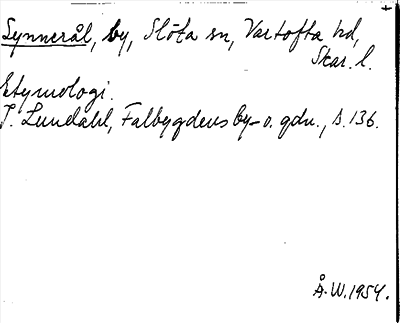 Synnerål, by, Slöta sn, Vartofta hd,
Skar. l.
Etymologi.
I. Lundahl, Falbygdens by- o. gdn., s. 136.
Å. W. 1954.